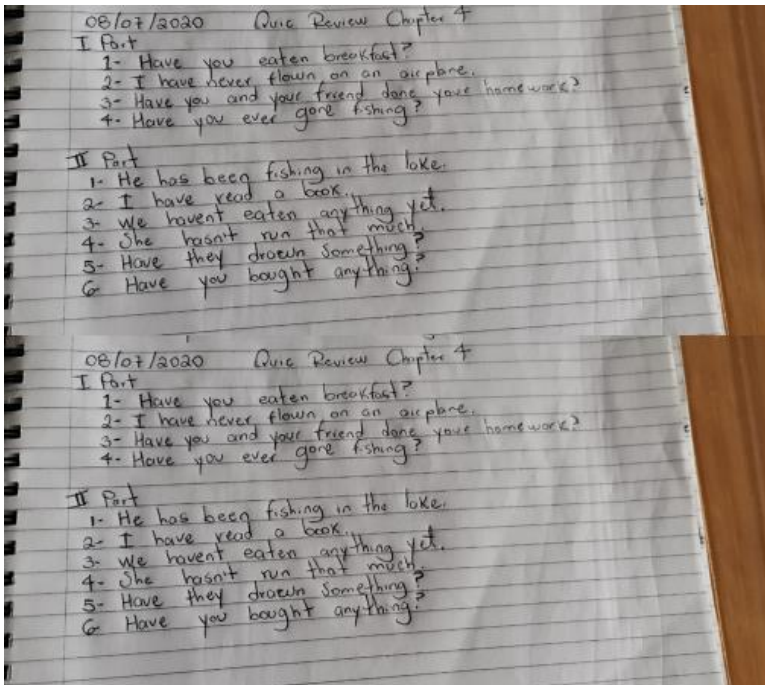 08/07/2020 Quic Review Chapter 4
I Part
1- Have you eaten breakfast?
2- I have never flown on an airplane.
3- Have you and your friend done your homework?
4- Have you ever gone fishing?
II Part
1- He has been fishing in the lake.
2- I have read a book.
3- We havent eaten anything yet.
4- She hasn't run that much.
5- Have they drawn something?
6- Have you bought anything?
08/07/2020 Quic Review Chapter 4
I Part
1- Have you eaten breakfast?
2- I have never flown on an airplane.
3- Have you and your friend done your homework?
4- Have you ever gone fishing?
II Part
1- He has been fishing in the lake.
2- I have read a book.
3- We havent eaten anything yet.
4- She hasn't run that much.
5- Have they drawn something?
6- Have you bought anything?